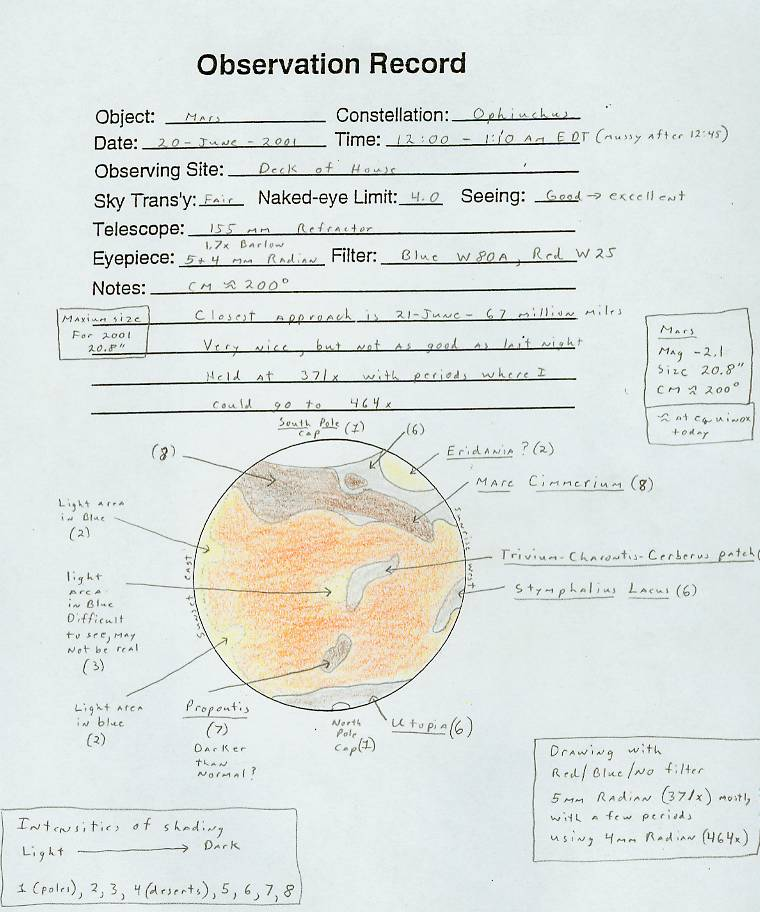 Observation Record
Object: Mars Constellation: Ophiuchus
Date: 20-June-2001 Time: 12:00 - 1:10 AM EDT (mussy after 12:45)
Observing Site: Deck of House
Sky Trans'y: Fair Naked-eye Limit: 4.0 Seeing: Good → excellent
Telescope: 155 mm Refractor
1.7x Barlow
Eyepiece: 5+4 mm Radian Filter: Blue W80A, Red W25
Notes: CM ≈ 200°
Closest Approach is 21-June-67 million miles
Very nice, but not as good as last night
Held at 371x with periods where I
could go to 464x
Maxium size
For 2001
20.8"
Mars
Mag -2.1
Size 20.8"
CM ≈ 200°
≈ at equinox
today
South Pole
Cap (1)
(6)
(8)
Eridania? (2)
Mare Cimmerium (8)
Light area
in Blue
(2)
Sunset east
Sunrise west
Trivium-Charontis-Cerberus patch(
Stymphalius Lacus (6)
light
area
in Blue
Difficult
to see, may
not be real
(3)
Light area
in blue
(2)
Propontis
(7)
Darker
than
normal?
North
Pole
Cap(1)
Utopia(6)
Drawing with
Red/Blue/No filter
5mm Radian (371x) mostly
with a few periods
using 4mm Radian (464x)
Intensities of shading
Light → Dark
1 (poles), 2, 3, 4 (deserts), 5, 6, 7, 8